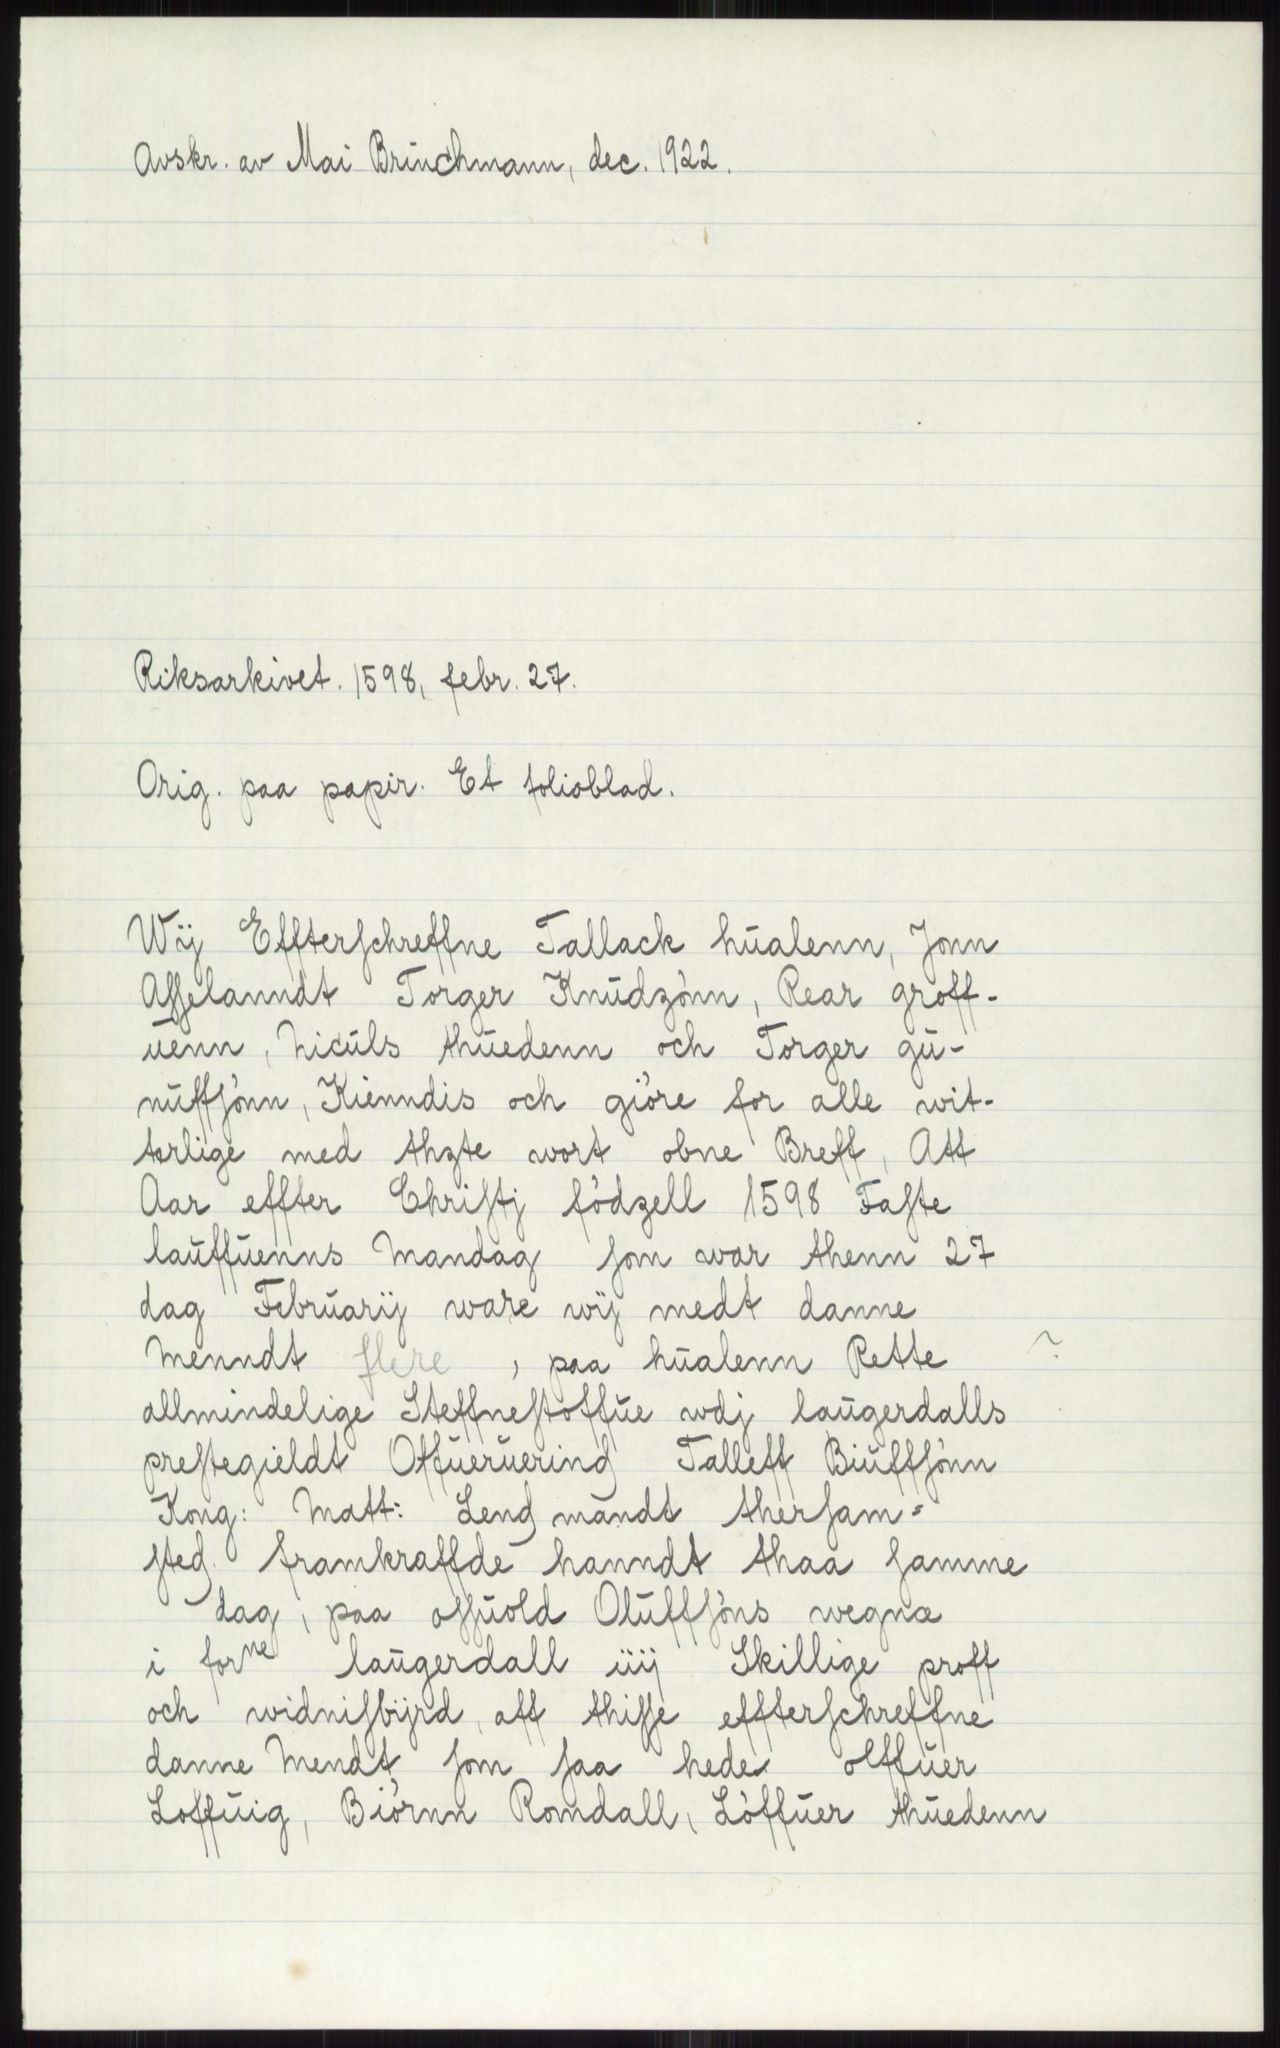 Avskr. av Mai Brinchmann, dec. 1922.
Riksarkivet. 1598, febr. 27.
Orig. paa papir. Et folioblad.
Wÿ Effterschreffne Tallack hualenn, Jonn
Asselanndt Torger Knudzönn, Rear groff-
uenn, Niculs thuedenn och Torger gu-
nuffsönn, Kienndis och giöre for alle wit-
terlige med thzte wort obne Breff, Att
Aar effter Christj födzell 1598 Faste
lauffuenns Mandag som war thenn 27
dag Februarij ware wÿ medt danne
Menndt flere, paa hualenn Rette ?
allmindelige Steffnestoffue wdj laugerdalls
prestegieldt Offueruerind Talleff Biuffsönn
Kong: Matt: Lend mandt thersam=
sted framkraffde hanndt thaa samme
dag, paa ossuold Oluffsöns wegnæ
i forne laugerdall iiij Skillige proff
och widnisbÿrd, att thisse effterschreffne
danne Mendt som saa heder olffuer
Loffuig, Biörnn Romdall, Löffuer thuedenn